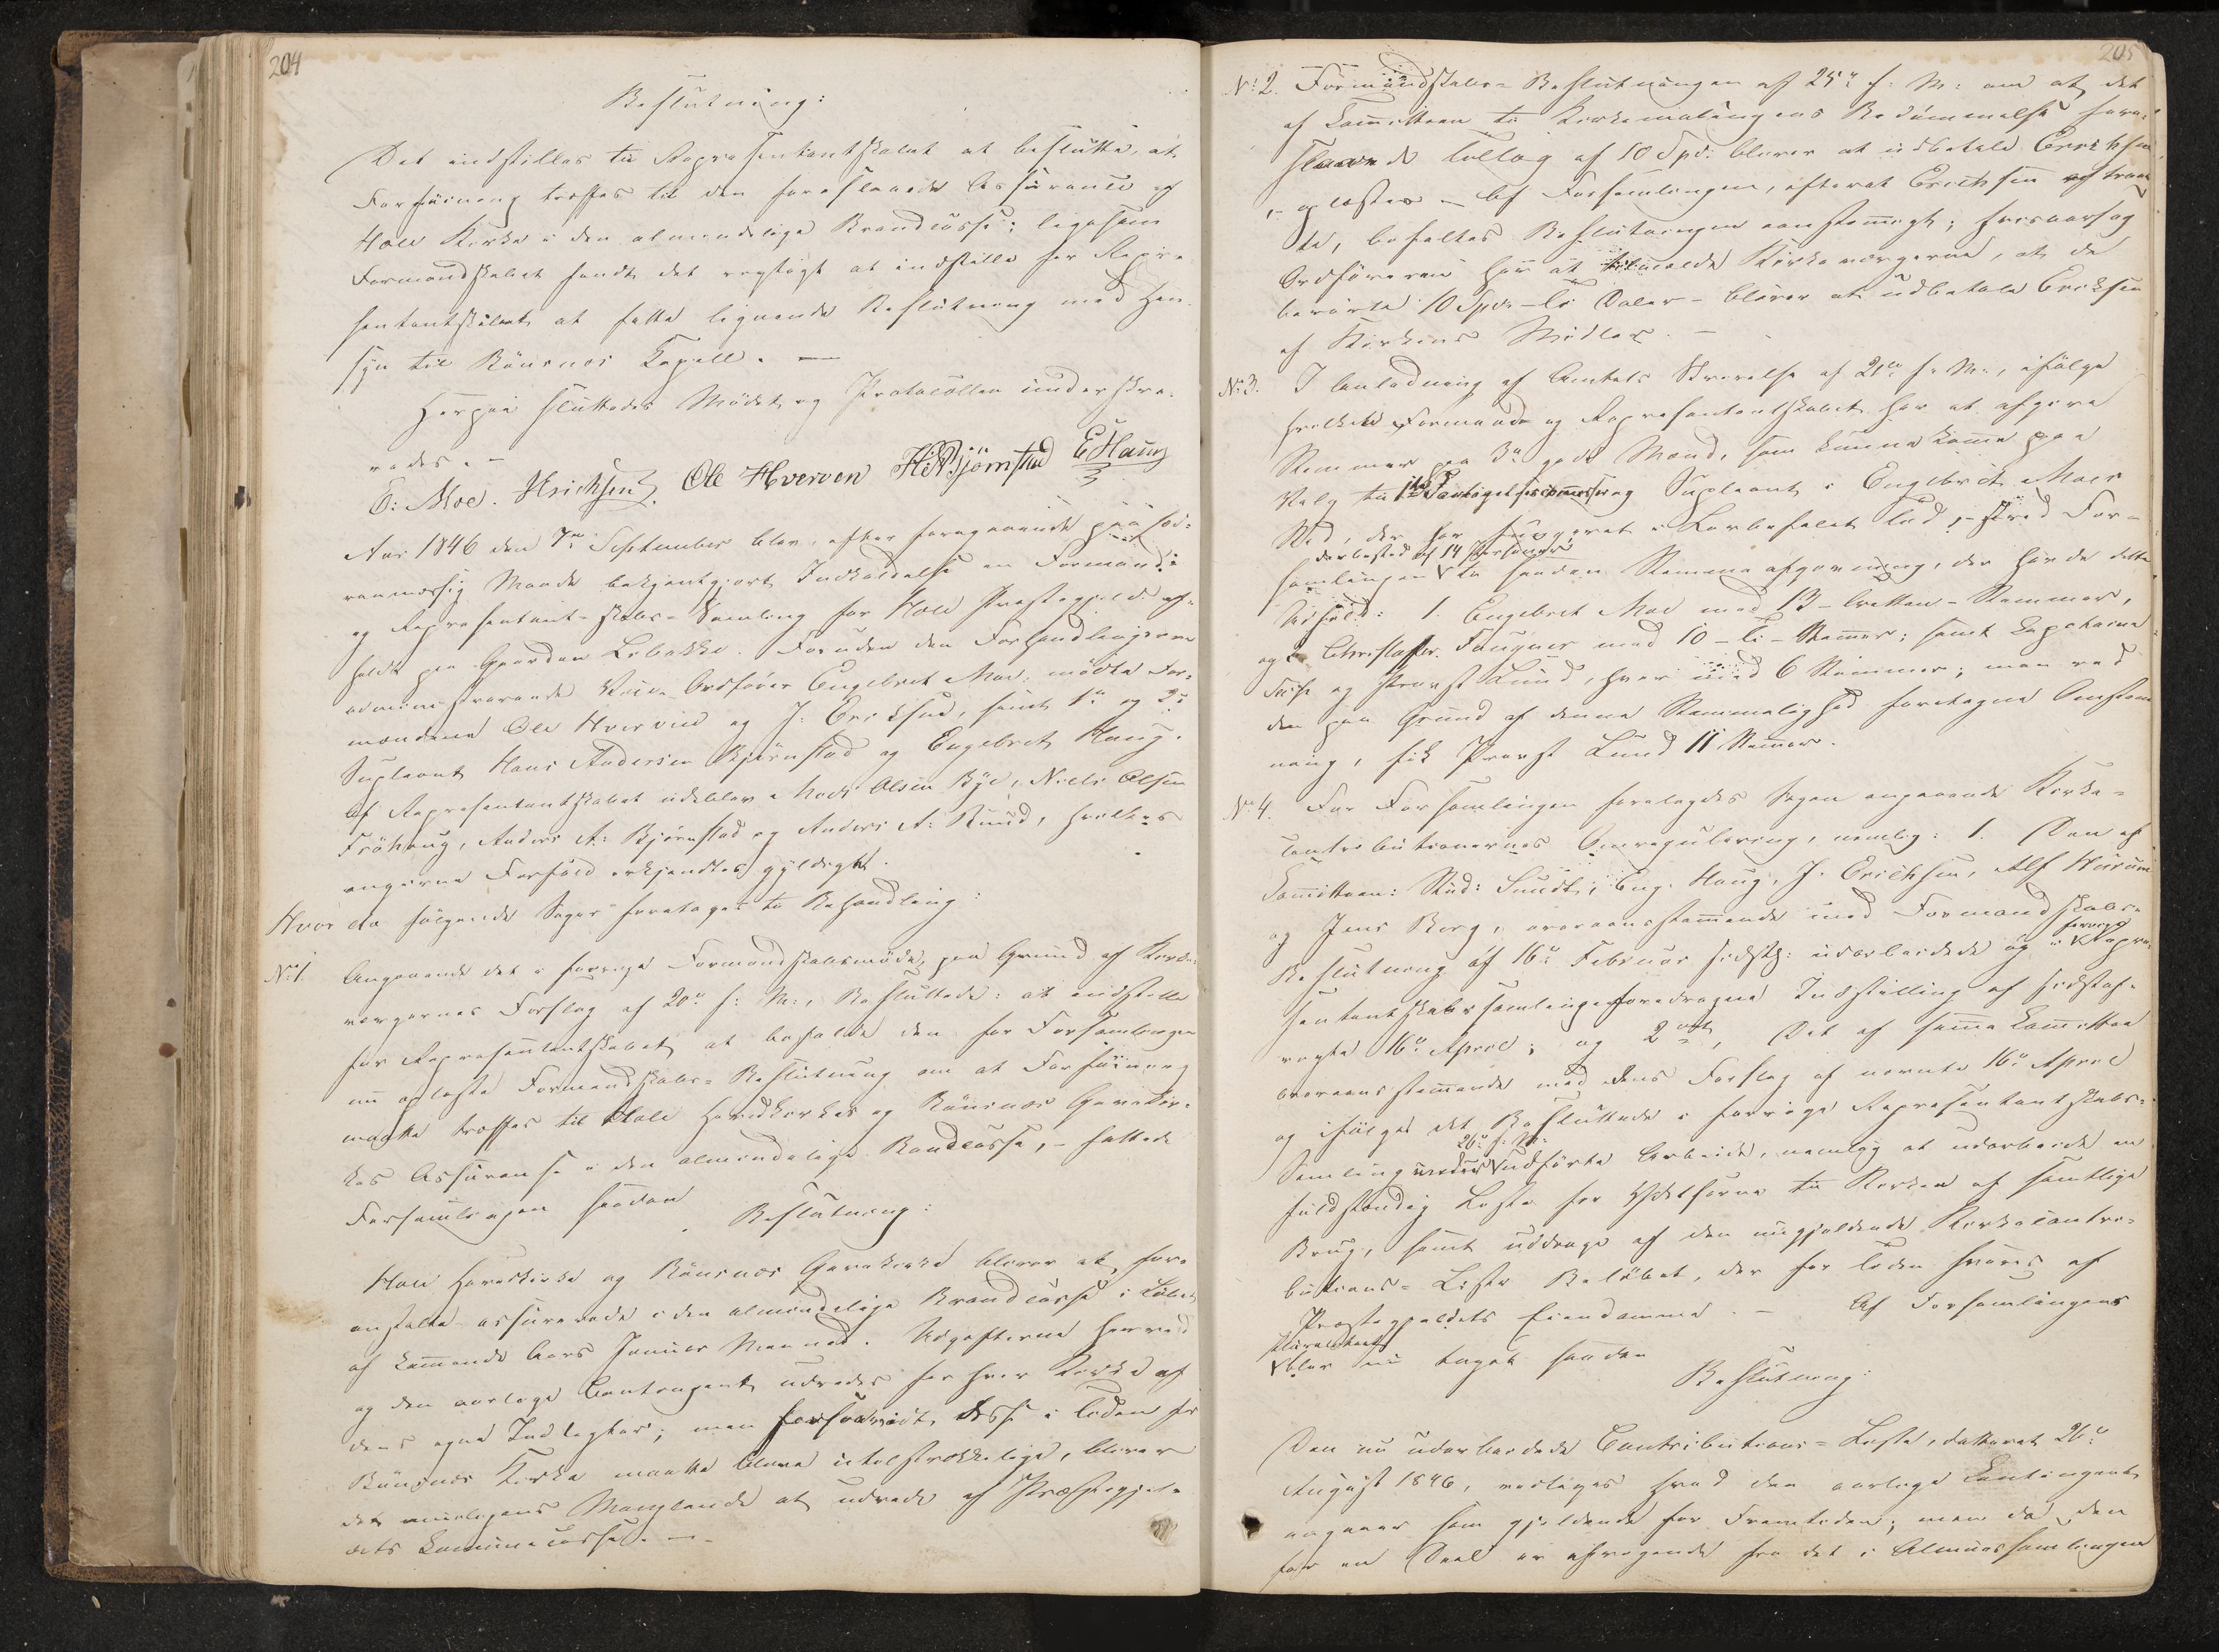 204
Beslutning:
Det indstilles til Repræsentantskabet at beslutte, at
Forføining træffes til den foreslaaede Assurance af
Hole Kirke i den almindelige Brandcasse; ligesom
Formandskabet fandt det rigtigt at indstille for Repræ-
sentantskabet at fatte lignende Beslutning med Hen-
syn til Bönsnæs Capell. —
Herpaa sluttedes Mødet og Protocollen underskre-
vedes. —
E: Moe. Hrichsen. Ole Hverven H A Bjørnstad E Haug
Aar 1846 den 7de September blev, efter foregaaende paa lov-
mæssig Maade bekjentgjort Indkaldelse en Formands-
og Repræsentant-skabs-Samling for Hole Præstegjeld af-
holdt paa Gaarden Løbakke. Foruden den Forhandlingerne
administrerende Ordfører Engebret Moe, mødte For-
mændene Ole Hverven og J: Erichsen, samt 1ste og 2den
Supleant Hans Andersen Bjørnstad og Engebret Haug.
Af Repræsentantskabet udeblev Mads Olsen Bye, Niels Olsen
Frøhaug, Anders A: Bjørnstad og Anders A: Ruud, hvilkes
angivne Forfald erkjendtes gyldigt.
Hvor da følgende Sager foretoges til Behandling:
No 1. Angaaende det i forrige Formandskabsmøde, paa Grund af Kirke-
værgernes Forslag af 20de f: M:, Besluttede: at indstille
for Repræsentantskabet at befalde den for Forsamlingen
nu oplæste Formandskabs-Beslutning om at Forføining
maatte træffes til Hole Hovedkirkes og Bönsnæs Gavekir-
kes Assuranse i den almindelige Brandcasse, – fattede
Forsamlingen saadan
Beslutning:
Hole Hovedkirke og Bönsnæs Gavekirke bliver at for-
anstalte assurerede i den almindelige Brandcasse i Løbet
af kommende Aars Januar Maaned. Udgifterne herved
og den aarlige Contingent udredes for hver Kirke af
dens egne Indtægter; men forsaavidt disse i Tiden for
Bönsnæs Kirke maatte blive utilstrækkelige, bliver
det muligens Manglende at udrede af Præstegjel-
dets Communecasse. —
205
No 2. Formandskabs-Beslutningen af 25de f: M: om at det
af Committeen til Kirkemalingens Bedømmelse fore-
slaaede Tillæg af 10 Spd: bliver at udbetale Erichsen
,– oplæstes – Af Forsamlingen, efterat Erichsen var traad-
te, befaltes Beslutningen eenstemmigt; hvisaarsag
Ordføreren har at tilmelde Kirkeværgerne, at de
berørte 10 Spd – ti Daler – bliver at udbetale Erichsen
af Kirkens Midler. –
No 3. I Anledning af Amtets Skrivelse af 21de f: M:, ifølge
hvilken Formands og Repræsentantskabet har at afgive
Stemmer paa 3de gode Mænd, som kunne komme paa
Valg til 1ste Supleant i Engebret Moes
Sted, der har fungeret i Lovbefalet Tid, – skred For-
der bestod af 14 Personer
samlingen til saadan Stemme afgivning, der havde dette
Udfald: 1. Engebret Moe med 13 – tretten – Stemmer,
og 2. Christoffer Fougner med 10 – ti – Stemmer; samt Capitaine
og Provst Lund, hver med 6 Stemmer; men ved
den paa Grund af denne Stemmelighed foretagne Omstem-
ning, fik Provst Lund 11 Stemmer.
No 4. For Forsamlingen forelagdes Sagen angaaende Kirke-
contributionernes Omregulering, nemlig: 1. Den af
Committeen: Stud: Sundt, Eng. Haug, J. Erichsen, Alf Hurum
og Jens Borg, overeensstemmende med Formandskabs-
Beslutning af 16de Februar sidstl: udarbeidede og i forrige Repræ-
sentantskabssamling foredragne Indstilling af sidstaf-
vigte 16de April; og 2det, Det af samme Committee
overeensstemmende med dens Forslag af nævnte 16de April
og ifølge det Besluttede i forrige Repræsentantskabs-
26de f: M:
Samling udførte Arbeide, nemlig at udarbeide en
fuldstændig Liste for Ydelserne til Kirken af samtlige
Brug, samt uddrage af den nugjeldende Kirkecontri-
butions-Liste Beløbet, der for Tiden svares af
Præstegjeldets Eiendomme. – Af Forsamlingens
Pluralitet
blev nu taget saadan
Beslutning:
Den nu udarbeidede Contributions-Liste, datteret 26de
August 1846, vedtages hvad den aarlige Contingent
angaaer som gjeldende for Fremtiden; men da den
for en Deel er afvigende fra det i Almuesamlingen